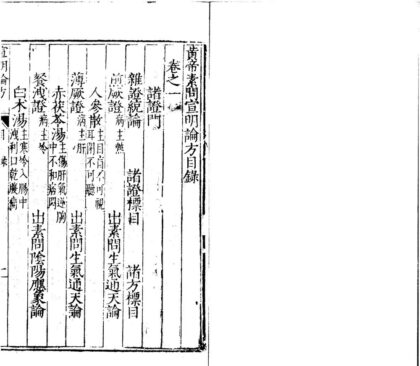 黃帝素問宣明論方目錄
卷之一
諸證門
雜證總論 諸證標目 諸方標目
煎厥證病主熱 出素問生氣通天論
人參散主目盲不可視耳閉不可聽
薄厥證病主肝 出素問生氣通天論
赤茯苓湯主傷肝氣逆胸中不和痛悶
飱泄證病主寒 出素問陰陽應象論
白朮湯主寒冷入腸中泄利口乾腹痛
宣明論方 目錄 一